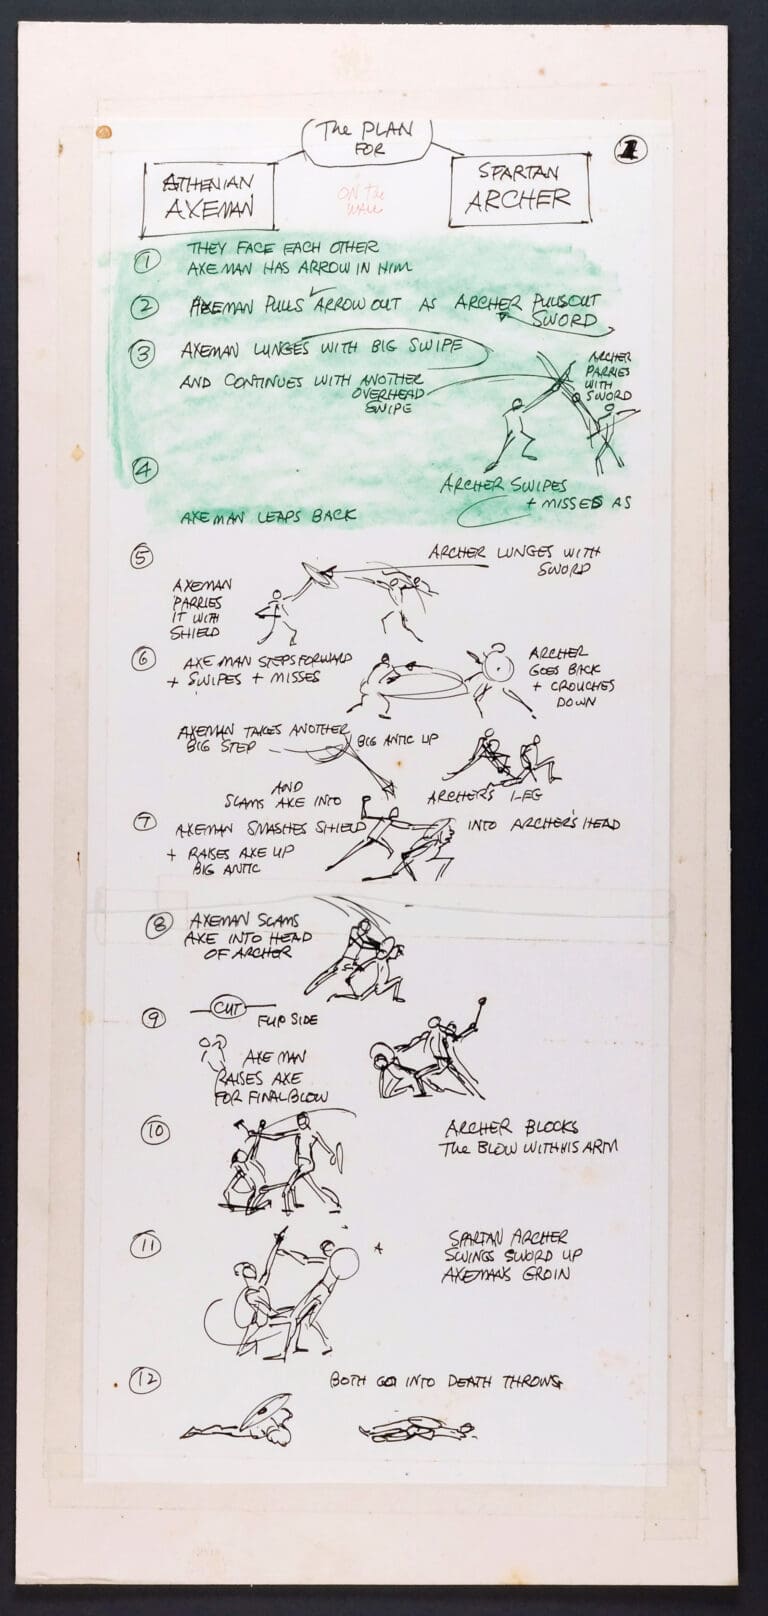 The PLAN
FOR
1
ATHENIAN
AXEMAN
ON the
WALL
SPARTAN
ARCHER
1 THEY FACE EACH OTHER
AXEMAN HAS ARROW IN HIM
2 AXEMAN PULLS ARROW OUT AS ARCHER PULLS OUT
SWORD
3 AXEMAN LUNGES WITH BIG SWIPE
AND CONTINUES WITH ANOTHER
OVERHEAD
SWIPE
ARCHER
PARRIES
WITH
SWORD
4 ARCHER SWIPES
+ MISSES AS
AXEMAN LEAPS BACK
5 ARCHER LUNGES WITH
SWORD
AXEMAN
PARRIES
IT WITH
SHIELD
6 AXEMAN STEPS FORWARD
+ SWIPES + MISSES
ARCHER
GOES BACK
+ CROUCHES
DOWN
AXEMAN TAKES ANOTHER
BIG STEP BIG ANTIC UP
AND
SLAMS AXE INTO ARCHER'S LEG
7 AXEMAN SMASHES SHIELD INTO ARCHER'S HEAD
+ RAISES AXE UP
BIG ANTIC
8 AXEMAN SLAMS
AXE INTO HEAD
OF ARCHER
CUT
9 FLIP SIDE
AXE MAN
RAISES AXE
FOR FINAL BLOW
10 ARCHER BLOCKS
The BLOW WITH HIS ARM
11 SPARTAN ARCHER
SWINGS SWORD UP
AXEMAN'S GROIN
12 BOTH GO INTO DEATH THROWS